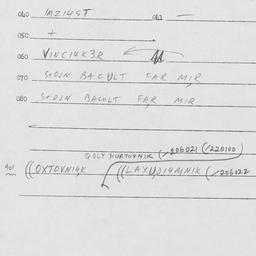 040 IMZ14ST 041 —
050 +
060 VINCIUK3R
070 STOIN BACULT FAR MIR
080 STOIN BACULT FAR MIR
GOLY HURTOVNIK (/206021 (/220100)
901 ((OXTOVNI4K ((LAXUDI4MNIK (/206022